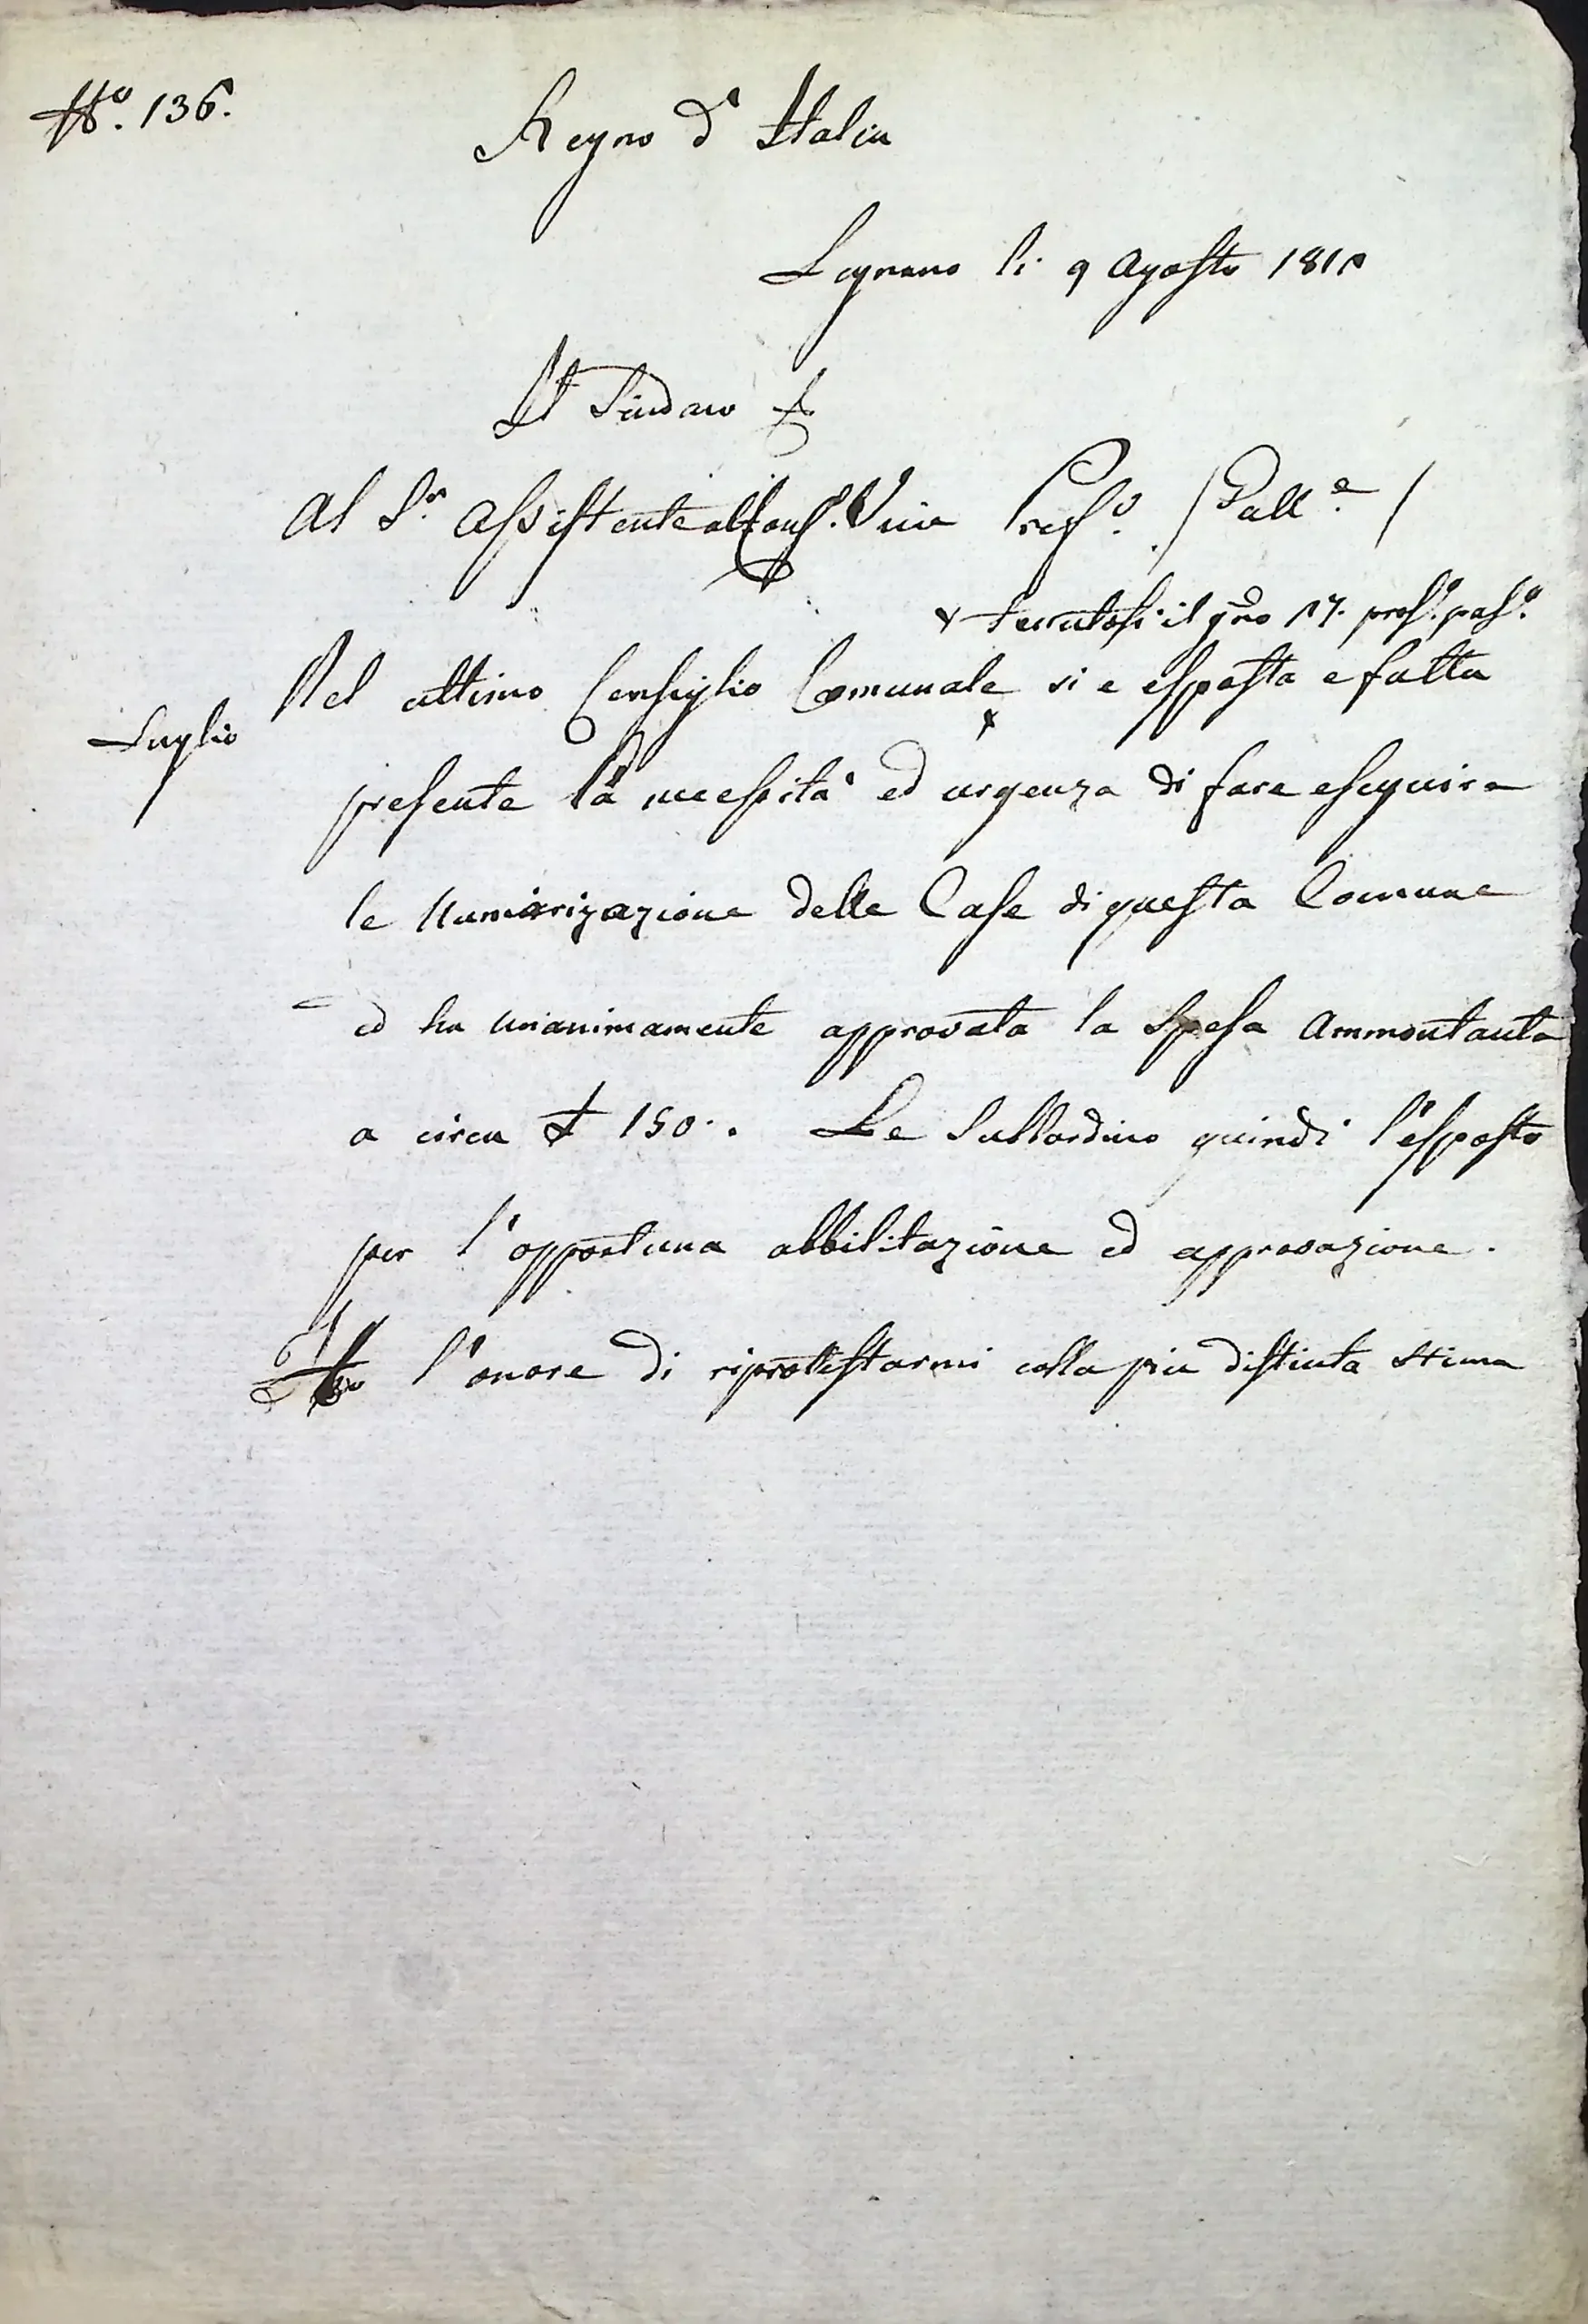 N.º 136.
Regno d' Italia
Legnano li 9 Agosto 1810
Il Sindaco
Al S.r Assistente al Cons. Vice Pref.º / Gall.e /
x tenutosi il g.no 17. pros.º pas.º
Nel ultimo Consiglio Comunale x si e esposta e fatta
Luglio
presente la necessità ed urgenza di fare eseguire
le Numerizazione delle Case di questa Comune
ed ha unanimamente approvata la Spesa Ammontante
a circa £ 150. Le Subbordino quindi l'esposto
per l'opportuna abbilitazione ed approvazione.
l'onore di riprottestarmi colla piu distinta stima